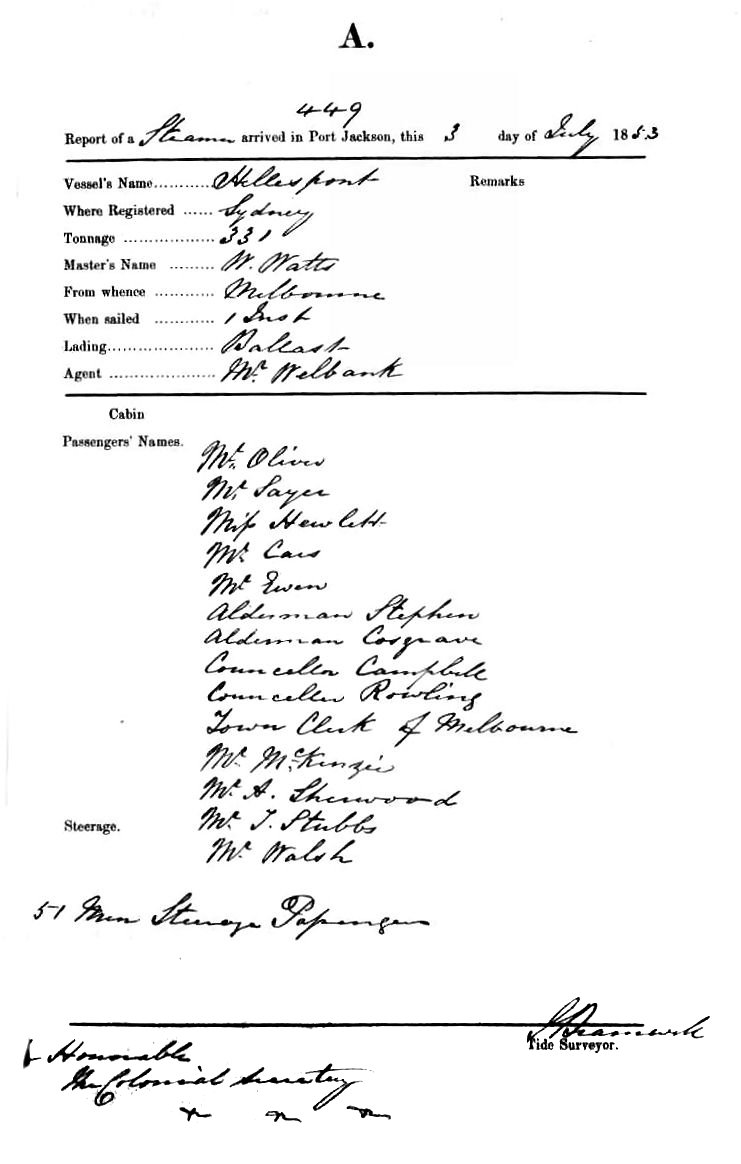 A.
449
Report of a Steamer arrived in Port Jackson, this 3 day of July 1853
Vessel's Name............ Hellespont Remarks
Where Registered ...... Sydney
Tonnage .................. 331
Master's Name ......... W. Watts
From whence ............ Melbourne
When sailed ............ 1 Inst
Lading..................... Ballast
Agent ..................... Mr. Welbank
Cabin
Passengers' Names.
Mr. Oliver
Mr. Sayer
Miss Hewlett
Mr. Cars
Mr Ewen
Alderman Stephen
Alderman Cosgrave
Councellor Campbell
Councellor Rowling
Town Clerk of Melbourne
Mr. McKenzie
Mr. A. Sherwood
Steerage. Mr. T. Stubbs
Mr. Walsh
51 Men Steerage Passengers
Tide Surveyor.
Honorable
The Colonial Secretary